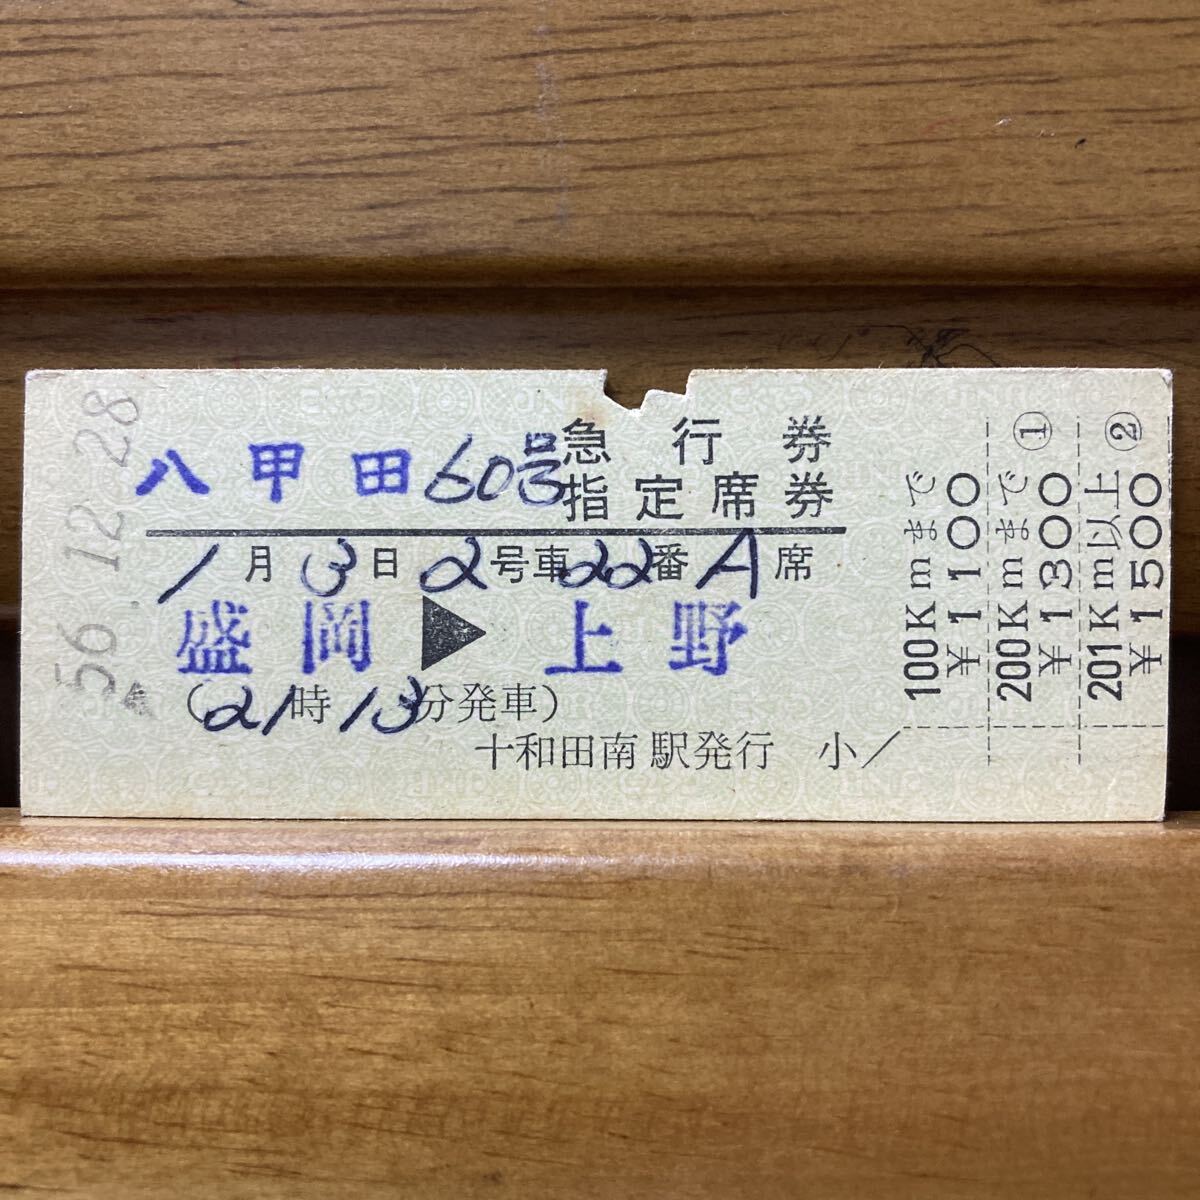 56.12.28
八甲田60号 急行券
指定席券
1月3日2号車22番A席
盛岡▶上野
(21時13分発車)
十和田南駅発行 小/
100Kmまで ¥1100
200Kmまで① ¥1300
201Km以上② ¥1500